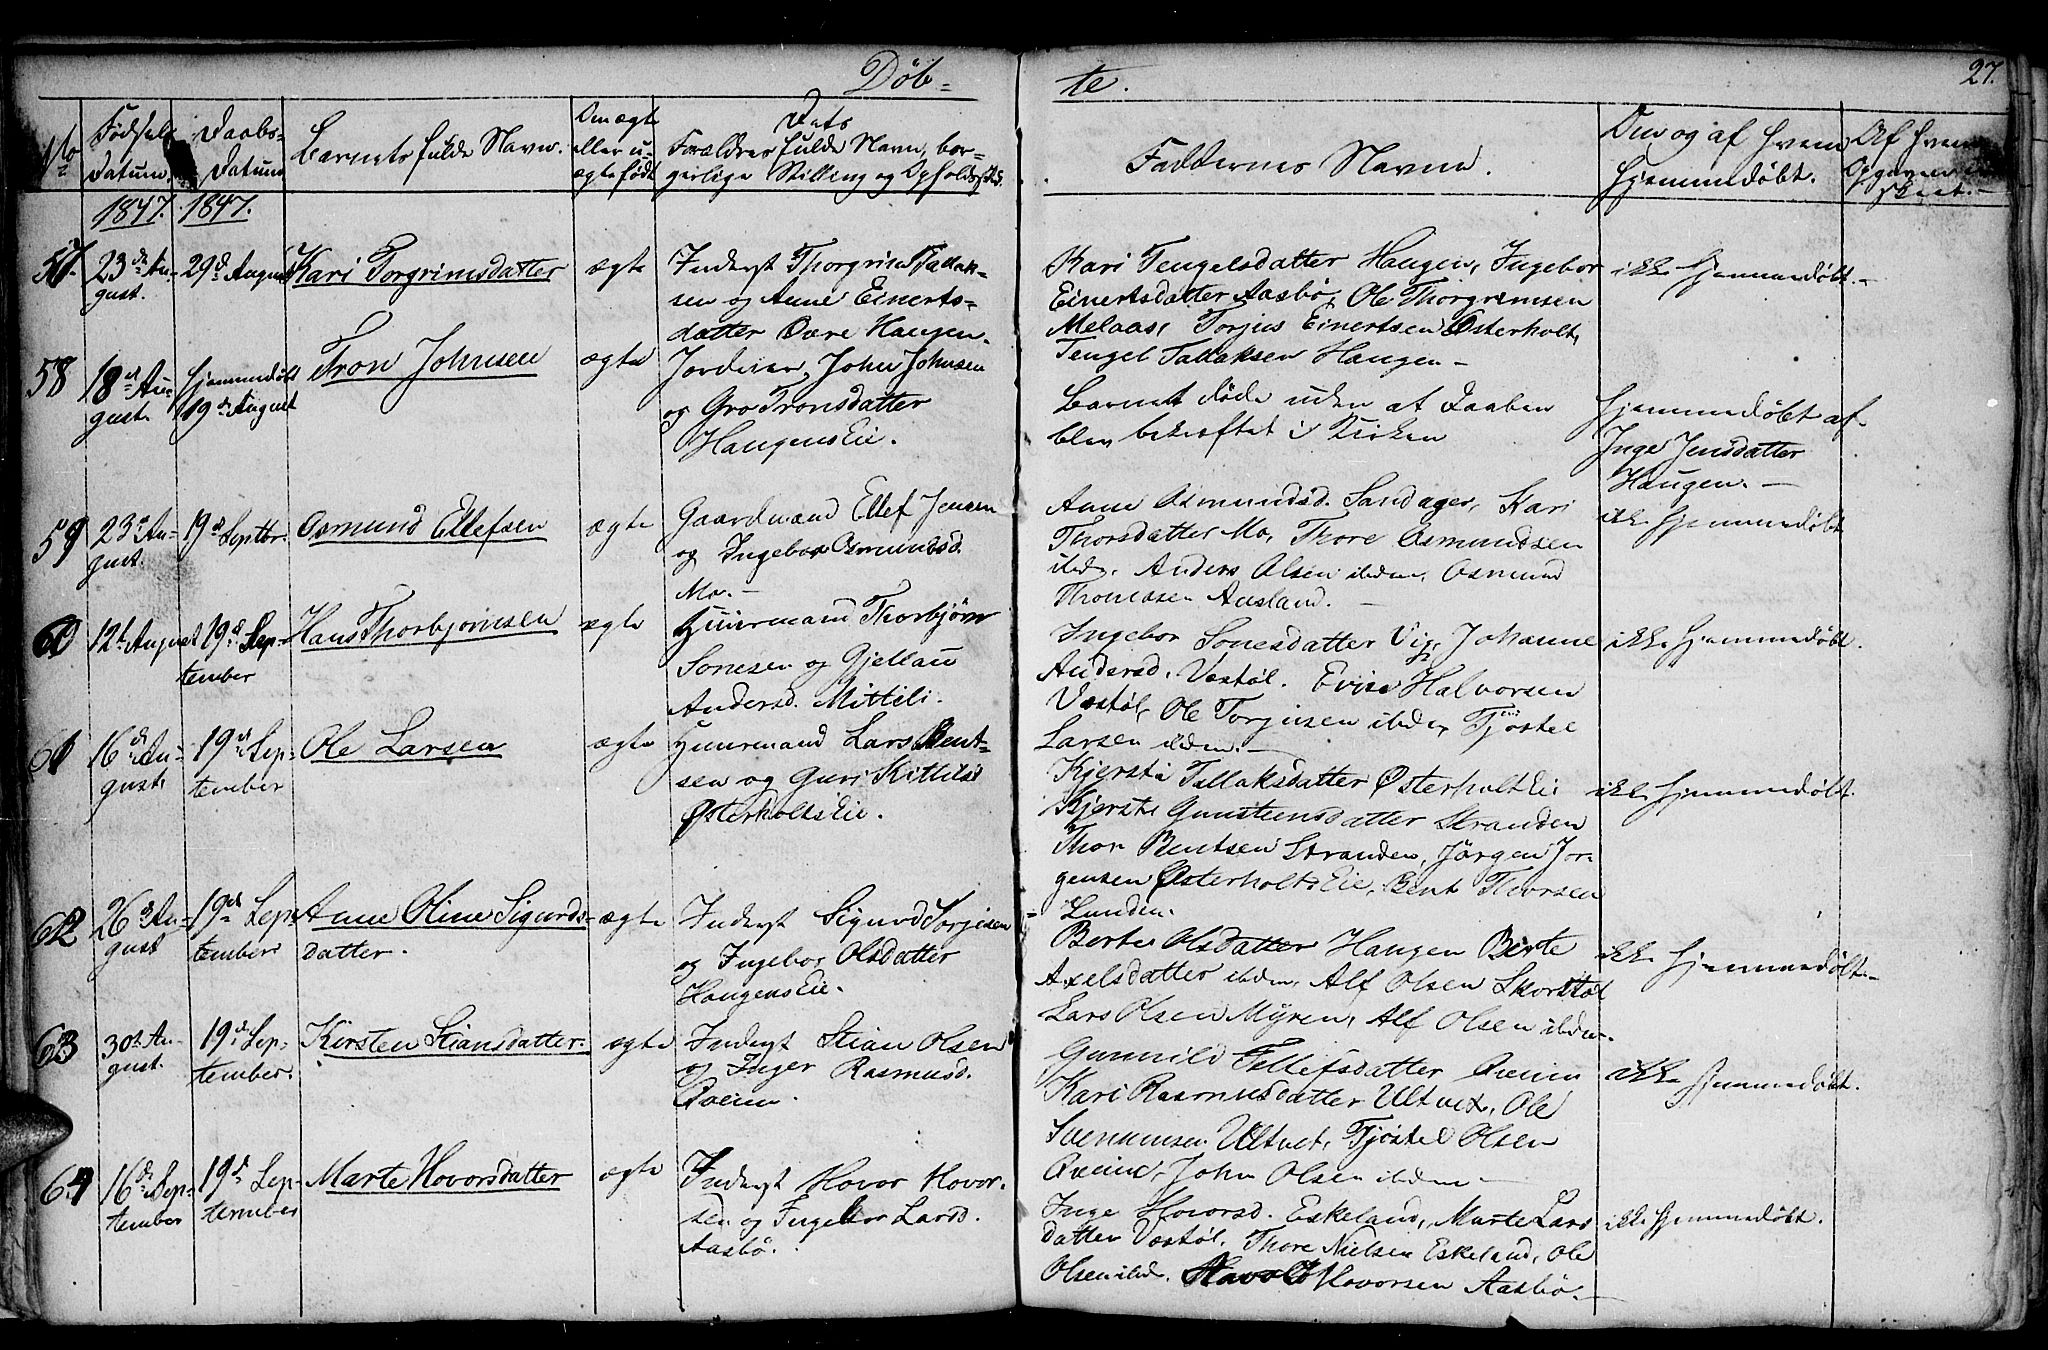 Døb= te. 27.
No Fødsels Datum. Daabs- Datum Barnets fulde Navn. Om ægte eller u- ægte født Dets Forældres fulde Navn, bor- gerlige Stilling og Opholdssted. Faddernes Navne. Om og af hvem hjemmedøbt. Af hvem Opgaven er skeet.-
1847. 1847.
57. 23de Au- gust. 29de August Kari Torgrimsdatter ægte
Inderst Thorgrim Tallak-
sen og Anne Einerts-
datter Øvre Haugen.
Kari Tengelsdatter Haugen, Ingebor
Einertsdatter Aasbø, Ole Thorgrimsen
Melaas, Torjus Einertsen Østerholt,
Tengel Tallaksen Haugen -
ikke hjemmedøbt. -
58 18de Au- gust. hjemmedøbt 19de August Tron Johnsen ægte
Jordeier John Johnsen
og Gro Tronsdatter
HaugensEie.
Barnet døde uden at Daaben
blev bekræftet i Kirken
hjemmedøbt af
Inge Jensdatter
Haugen. -
59 23de Au- gust. 19de Septbr. Osmund Ellefsen ægte
Gaardmand Ellef Jensen
og Ingebor Osmundsd.
Mo. -
Anne Osmundsd. Sandager, Kari
Thorsdatter Mo, Thore Osmundsen
ibdm, Anders Olsen ibdm, Osmund
Thomasen Ausland. -
ikke hjemmedøbt
60 12te August 19de Sep- tember Hans Thorbjørnsen ægte
Huusmand Thorbjørn
Sonesen og Gjellau
Andersd. Mittili.
Ingebor Sonesdatter Vig, Johanne
Andersd. Vestøl. Halvorsen
Vestøl, Ole Torjusen ibdm, Tjøstel
Larsen ibdm. -
ikke hjemmedøbt.
61 16de Au- gust. 19de Sep- tember Ole Larsen ægte
Huusmand Lars Bent-
sen og Guri Kittilsd
ØsterholtsEie.
Kjersti Tallaksdatter ØsterholtEie
Kjersti Gunsteensdatter Stranden
Thor Bentsen Stranden, Jørgen Jør-
gensen ØsterholtsEie, Bent Thorsen
Lunden.
ikke hjemmedøbt.
62 26de Au- gust 19de Sep- tember Anne Oline Sigurds- datter. ægte
Inderst Sigurd Torjusen
og Ingebor Olsdatter
HaugensEie.
Berte Olsdatter Haugen Berte
Axelsdatter ibdm, Alf Olsen Skorstøl
Lars Olsen Myren, Alf Olsen ibdm.
ikke hjemmedøbt. -
63 30te Au- gust. 19de Sep- tember. Kirsten Stiansdatter. ægte
Inderst Stian Olsen
og Inger Rasmusd.
Qveim.
Gunnild Tellefsdatter Qveim
Kari Rasmusdatter Ultvet, Ole
Svennumsen Ultvet, Tjøstel Olsen
Qveim, John Olsen ibdm -
ikke hjemmedøbt.
64 16de Sep- tember 19de Sep- tember Marte Hovorsdatter ægte
Inderst Hovor Hovor-
sen og Ingebor Larsd.
Aasbø.
Inge Hovorsd. Eskeland, Marte Lars
datter Vestøl, Thore Nielsen Eskeland, Ole
Olsen ibd. Havold Hovorsen Aasbø. -
ikke hjemmedøbt.